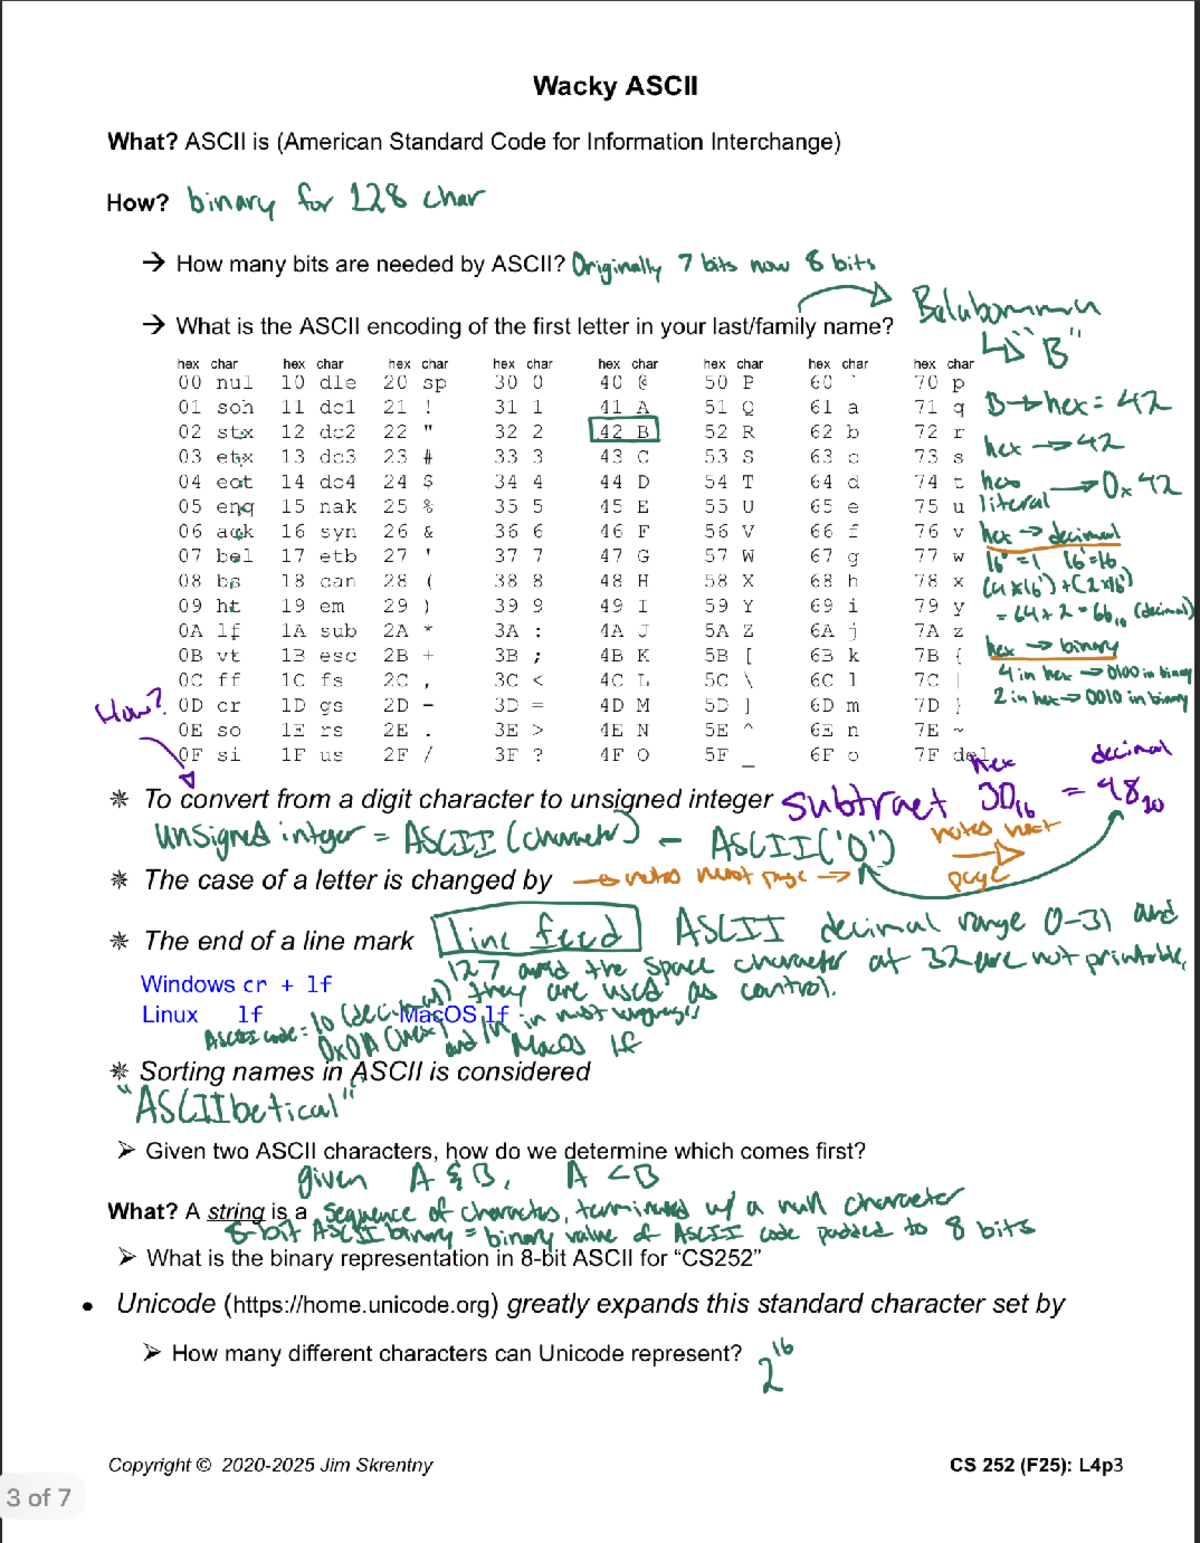 Wacky ASCII
What? ASCII is (American Standard Code for Information Interchange)
How? binary for 128 char
→ How many bits are needed by ASCII? Originally 7 bits now 8 bits
→ What is the ASCII encoding of the first letter in your last/family name?
↳ "B"
hex char hex char hex char hex char hex char hex char hex char hex char
00 nul 10 dle 20 sp 30 0 40 @ 50 P 60 ` 70 p
01 soh 11 dc1 21 ! 31 1 41 A 51 Q 61 a 71 q
02 stx 12 dc2 22 " 32 2 42 B 52 R 62 b 72 r
03 etx 13 dc3 23 # 33 3 43 C 53 S 63 c 73 s
04 eot 14 dc4 24 $ 34 4 44 D 54 T 64 d 74 t
05 enq 15 nak 25 % 35 5 45 E 55 U 65 e 75 u
06 ack 16 syn 26 & 36 6 46 F 56 V 66 f 76 v
07 bel 17 etb 27 ' 37 7 47 G 57 W 67 g 77 w
08 bs 18 can 28 ( 38 8 48 H 58 X 68 h 78 x
09 ht 19 em 29 ) 39 9 49 I 59 Y 69 i 79 y
0A lf 1A sub 2A * 3A : 4A J 5A Z 6A j 7A z
0B vt 1B esc 2B + 3B ; 4B K 5B [ 6B k 7B {
0C ff 1C fs 2C , 3C < 4C L 5C \ 6C l 7C |
0D cr 1D gs 2D - 3D = 4D M 5D ] 6D m 7D }
0E so 1E rs 2E . 3E > 4E N 5E ^ 6E n 7E ~
0F si 1F us 2F / 3F ? 4F O 5F _ 6F o 7F del
B → hex = 42
hex → 42
hex literal → 0x42
hex → decimal
16⁰ = 1 16¹ = 16
(4 × 16¹) + (2 × 16⁰)
= 64 + 2 = 66₁₀ (decimal)
hex → binary
4 in hex → 0100 in binary
2 in hex → 0010 in binary
How?
hex decimal
✵ To convert from a digit character to unsigned integer subtract 30₁₆ = 48₁₀
unsigned integer = ASCII (character) - ASCII('0')
notes next page
✵ The case of a letter is changed by → notes next page →
✵ The end of a line mark line feed
ASCII decimal range 0-31 and
127 and the space character at 32 are not printable,
they are used as control.
Windows cr + lf
Linux lf MacOS lf
ASCII code = 10 (decimal)
0x0A (hex)
and \n in most languages
MacOS lf
✵ Sorting names in ASCII is considered
"ASCIIbetical"
➢ Given two ASCII characters, how do we determine which comes first?
given A & B, A < B
What? A string is a sequence of characters, terminated w/ a null character
8-bit ASCII binary = binary value of ASCII code padded to 8 bits
➢ What is the binary representation in 8-bit ASCII for “CS252”
• Unicode (https://home.unicode.org) greatly expands this standard character set by
➢ How many different characters can Unicode represent? 2¹⁶
Copyright © 2020-2025 Jim Skrentny
CS 252 (F25): L4p3
3 of 7